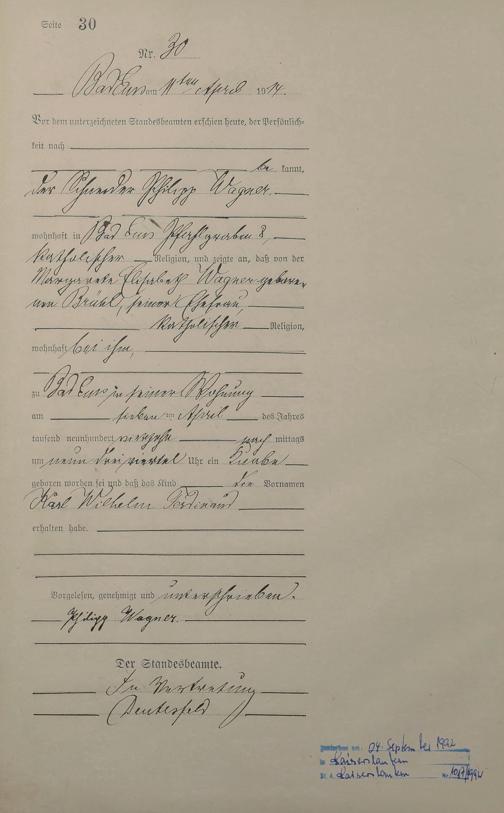 Seite 30
Nr. 30
Bad Ems am 11ten April 1914.
Vor dem unterzeichneten Standesbeamten erschien heute, der Persönlich-
keit nach
be kannt,
der Schneider Philipp Wagner
wohnhaft in Bad Ems Pfahlgraben 8,
katholischer Religion, und zeigte an, daß von der
Margarete Elisabeth Wagner gebore-
nen Brühl, seiner Ehefrau,
katholischer Religion,
wohnhaft bei ihm,
zu Bad Ems in seiner Wohnung
am sieben ten April des Jahres
tausend neunhundert vierzehn nach mittags
um neun dreiviertel Uhr ein Knabe
geboren worden sei und daß das Kind die Vornamen
Karl Wilhelm Ferdinand
erhalten habe.
Vorgelesen, genehmigt und unterschrieben.
Philipp Wagner.
Der Standesbeamte.
In Vertretung
am: 04. September 1992
in Kaiserslautern
St. A. Kaiserslautern Nr.